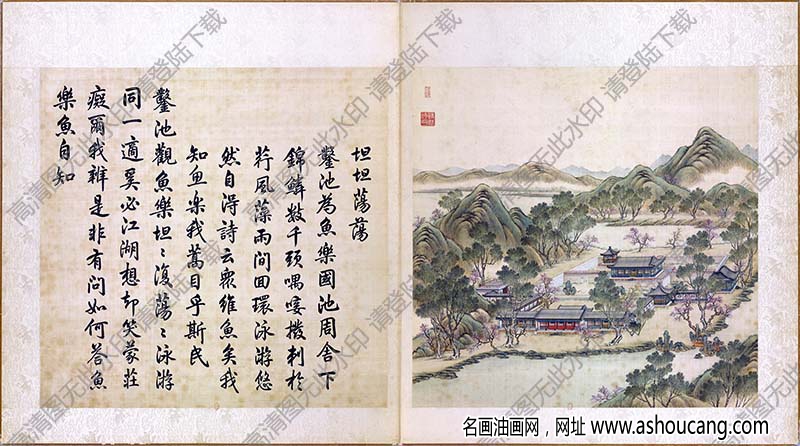 坦坦蕩蕩
鑿池為魚樂國池周舍下
錦鱗數千頭喁唼撥刺於
荇風藻雨間回環泳游悠
然自得詩云衆維魚矣我
知魚樂我蒿目乎斯民
鑿池觀魚樂坦〻復蕩〻泳游
同一適奚必江湖想却笑蒙莊
癡爾我辨是非有問如何答魚
樂魚自知
高清图无此水印 请登陆下载
名画油画网，网址 www.ashoucang.com